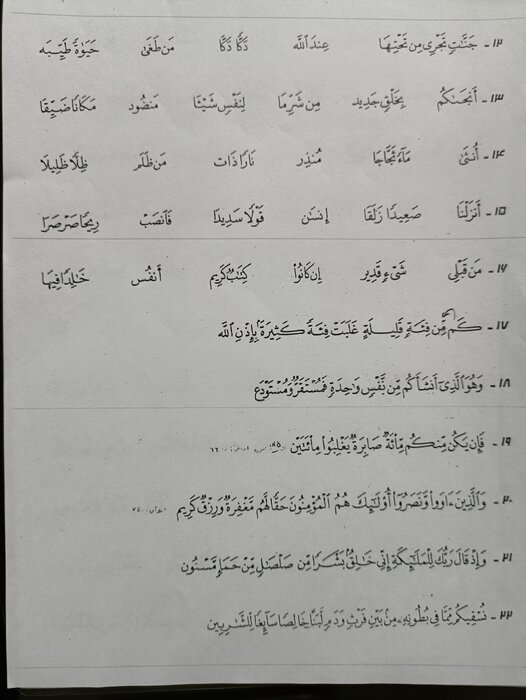 ۱۲ - جَنَّاتٍ تَجْرِي مِن تَحْتِهَا عِندَ اللَّه دَكًّا دَكًّا مَن طَغَىٰ حَيَوٰةً طَيِّبَه
۱۳ - أَنجَىٰكُم بِخَلْقٍ جَدِيد مِن شَرِّ مَا لِنَفْسٍ شَيْئًا مَنضُود مَكَانًا ضَيِّقًا
۱۴ - أُنثَىٰ مَآءً ثَجَّاجًا مُنذِر نَارًا ذَات مَن ظَلَم ظِلًّا ظَلِيلًا
۱۵ - أَنزَلْنَا صَعِيدًا زَلَقًا إِنسَٰن قَوْلًا سَدِيدًا فَانصَبْ رِيحًا صَرْصَرًا
۱۶ - مَن قَبْلِي شَيْءٍ قَدِير إِن كَانُوا كِتَٰبٌ كَرِيم أَنفُس خَٰلِدًا فِيهَا
۱۷ - كَم مِّن فِئَةٍ قَلِيلَةٍ غَلَبَتْ فِئَةً كَثِيرَةً بِإِذْنِ اللَّه
۱۸ - وَهُوَ الَّذِي أَنشَأَكُم مِّن نَّفْسٍ وَٰحِدَةٍ فَمُسْتَقَرٌّ وَمُسْتَوْدَع
۱۹ - فَإِن يَكُن مِّنكُم مِّائَةٌ صَابِرَةٌ يَغْلِبُوا مِائَتَيْن
۲۰ - وَالَّذِينَ ءَاوَوا وَّنَصَرُوا أُولَٰئِكَ هُمُ الْمُؤْمِنُونَ حَقًّا لَّهُم مَّغْفِرَةٌ وَرِزْقٌ كَرِيم
۲۱ - وَإِذْ قَالَ رَبُّكَ لِلْمَلَٰئِكَةِ إِنِّي خَٰلِقٌ بَشَرًا مِّن صَلْصَٰلٍ مِّنْ حَمَإٍ مَّسْنُون
۲۲ - نُسْقِيكُم مِّمَّا فِي بُطُونِهِ مِن بَيْنِ فَرْثٍ وَدَمٍ لَّبَنًا خَالِصًا سَائِغًا لِّلشَّارِبِين